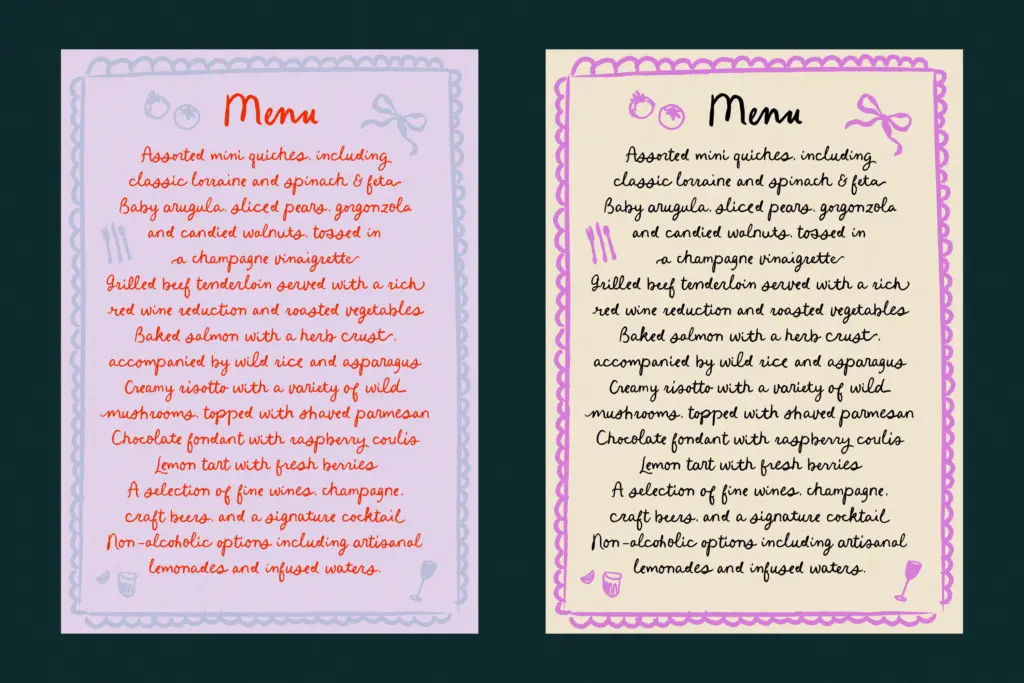 Menu
Assorted mini quiches, including
classic lorraine and spinach & feta
Baby arugula, sliced pears, gorgonzola
and candied walnuts, tossed in
a champagne vinaigrette
Grilled beef tenderloin served with a rich
red wine reduction and roasted vegetables
Baked salmon with a herb crust,
accompanied by wild rice and asparagus
Creamy risotto with a variety of wild
mushrooms, topped with shaved parmesan
Chocolate fondant with raspberry coulis
Lemon tart with fresh berries
A selection of fine wines, champagne,
craft beers, and a signature cocktail
Non-alcoholic options including artisanal
lemonades and infused waters.
Menu
Assorted mini quiches, including
classic lorraine and spinach & feta
Baby arugula, sliced pears, gorgonzola
and candied walnuts, tossed in
a champagne vinaigrette
Grilled beef tenderloin served with a rich
red wine reduction and roasted vegetables
Baked salmon with a herb crust,
accompanied by wild rice and asparagus
Creamy risotto with a variety of wild
mushrooms, topped with shaved parmesan
Chocolate fondant with raspberry coulis
Lemon tart with fresh berries
A selection of fine wines, champagne,
craft beers, and a signature cocktail
Non-alcoholic options including artisanal
lemonades and infused waters.